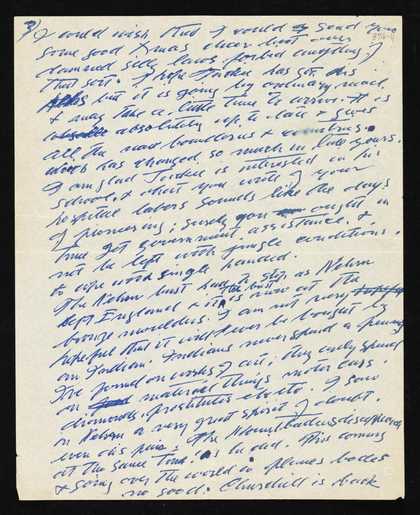 3) I would wish that I could send you
some good Xmas cheer but our
damned silly laws forbid anything of
that sort. I hope has got his
but it is going by ordinary mail
& may take a little time to arrive. It is
absolutely up to date & gives
all the new boundaries & countries.
which has changed so much in late years.
I am glad is interested in his
school, & what you write of your
hospital labors sounds like the days
of pioneering; surely you ought in
time get government assistance, &
not be left with jungle conditions.
to cope with single handed.
The Nehru bust had to stop, as Nehru
left England & it the bust is now at the
bronze moulders. I am not very
hopeful that it will ever be bought by
an Indian. Indians never spend a penny
on works of art; they only spend
on material things motor cars.
diamonds, prostitutes etc etc. I saw
in Nehru a very great spirit of doubt.
even despair: The
at the same time as he did. This coming
& going over the world in planes bodes
no good: Churchill is back